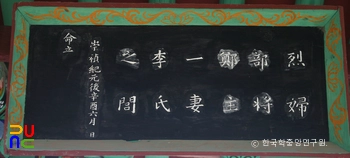 烈婦
部將
鄭
一妻
李氏
之閭
崇禎紀元後辛酉六月 日
命立
© 한국학중앙연구원